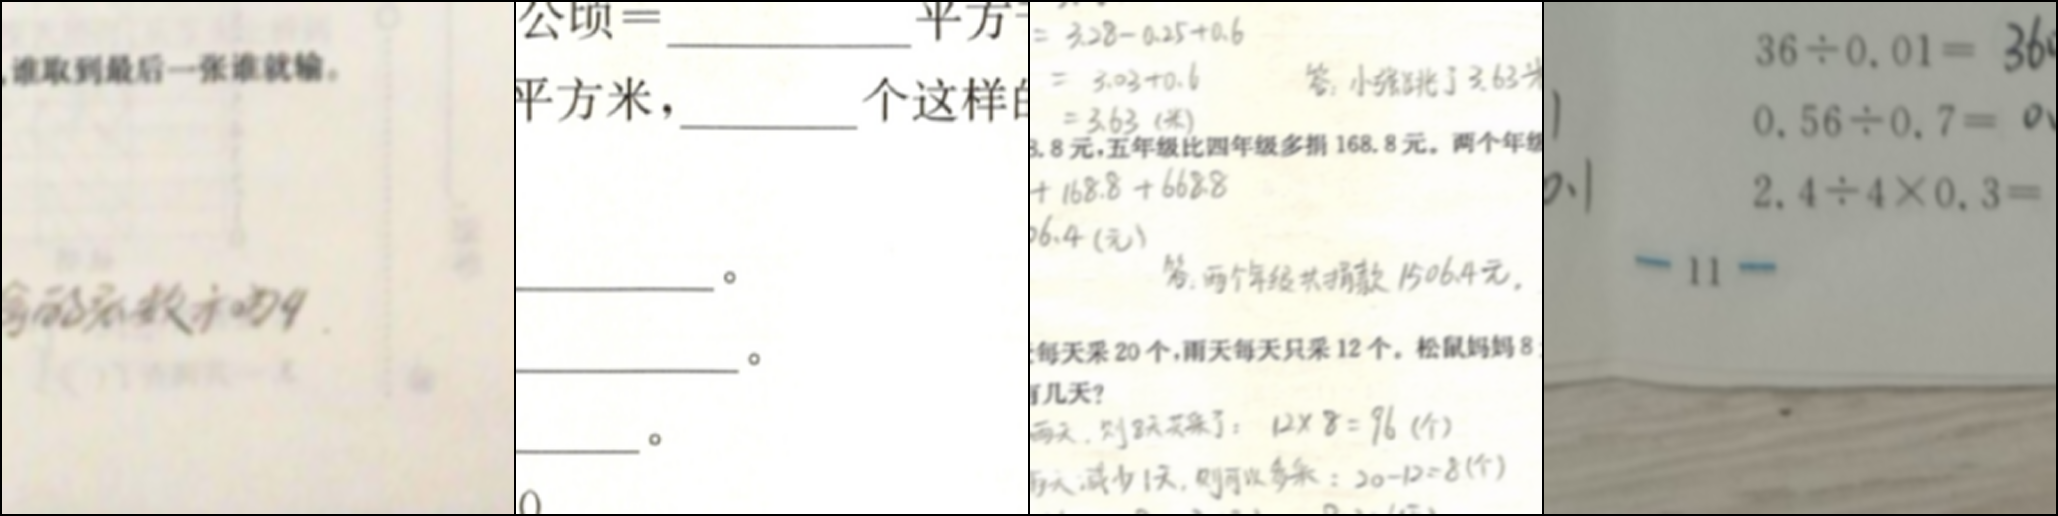 ,谁取到最后一张谁就输。
公顷=________平方
平方米,________个这样
。
。
。
0
= 3.28-0.25+0.6
= 3.03+0.6
答:小强跳了3.63米
=3.63 (米)
8.8元,五年级比四年级多捐168.8元。两个年级
+168.8+668.8
06.4(元)
答:两个年级共捐款1506.4元.
每天采20个,雨天每天只采12个。松鼠妈妈8
有几天?
雨天,则8天共采了: 12×8=96 (个)
雨天,减少1天,则可以多采: 20-12=8(个)
36÷0.01= 360
0.56÷0.7= 0.
0.1
2.4÷4×0.3=
11